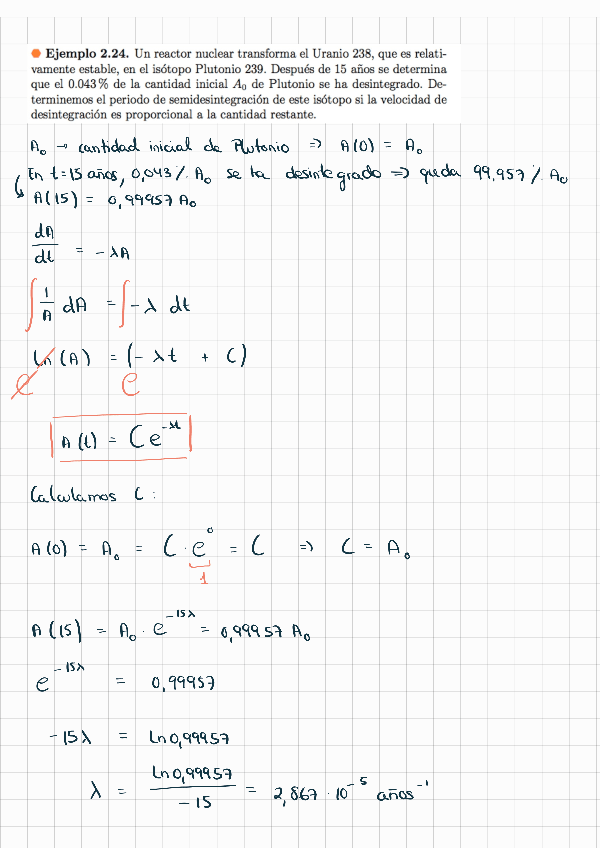 Ejemplo 2.24. Un reactor nuclear transforma el Uranio 238, que es relati-
vamente estable, en el isótopo Plutonio 239. Después de 15 años se determina
que el 0.043 % de la cantidad inicial A₀ de Plutonio se ha desintegrado. De-
terminemos el periodo de semidesintegración de este isótopo si la velocidad de
desintegración es proporcional a la cantidad restante.
A₀ → cantidad inicial de Plutonio => A(0) = A₀
En t=15 años, 0,043 % A₀ se ha desintegrado => queda 99,957 % A₀
A(15) = 0,99957 A₀
dA/dt = -λA
∫ 1/A dA = ∫ -λ dt
Ln(A) = (-λt + C)
e e
A(t) = Ce^(-λt)
Calculamos C:
A(0) = A₀ = C · e⁰ = C => C = A₀
1
A(15) = A₀ · e^(-15λ) = 0,99957 A₀
e^(-15λ) = 0,99957
-15λ = Ln 0,99957
λ = Ln 0,99957 / -15 = 2,867 · 10⁻⁵ años⁻¹